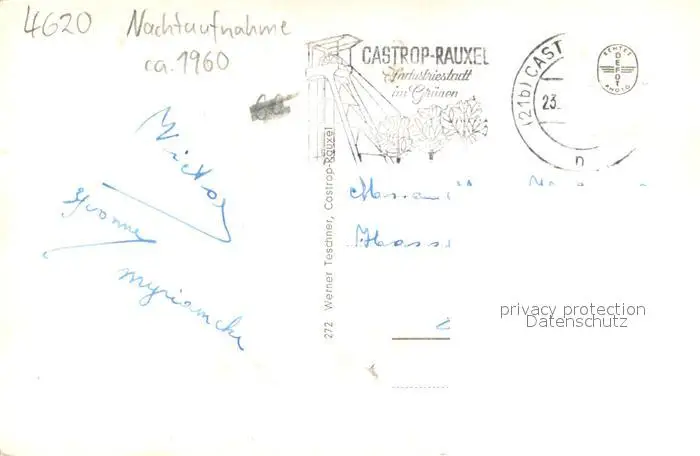 4620 Nachtaufnahme
ca. 1960
CASTROP-RAUXEL
Industriestadt
im Grünen
(21b) CAST
23.
n
ECHTES
DEFOT
PHOTO
Victor
Yvonne
Myriamcke
272 Werner Teschner, Castrop-Rauxel
privacy protection
Datenschutz